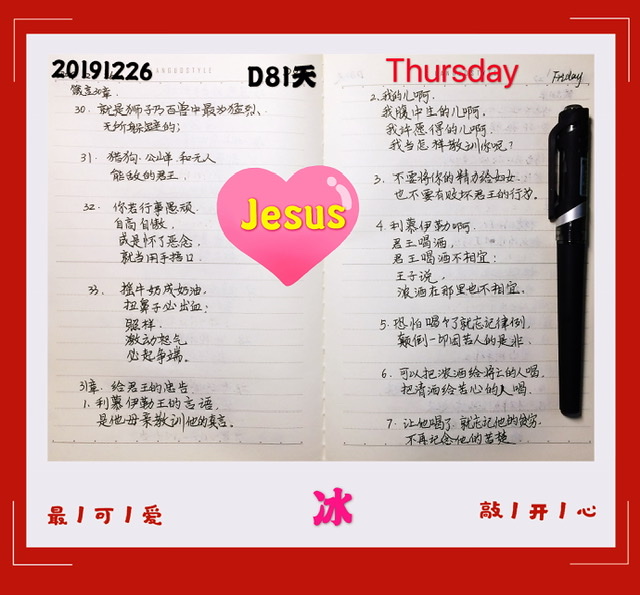 20191226
ANGUOSTYLE
D81天
Thursday
Friday
箴言30章.
30. 就是狮子乃百兽中最为猛烈、
无所躲避的;
31. 猎狗.公山羊.和无人
能敌的君王.
32. 你若行事愚顽.
自高自傲.
或是怀了恶念,
就当用手捂口.
33. 摇牛奶成奶油.
扭鼻子必出血;
照样.
激动怒气
必起争端。
31章. 给君王的忠告
1. 利慕伊勒王的言语,
是他母亲教训他的真言。
2. 我的儿啊.
我腹中生的儿啊.
我许愿得的儿啊.
我当怎样教训你呢?
3. 不要将你的精力给妇女.
也不要有败坏君王的行为.
4. 利慕伊勒啊.
君王喝酒,
君王喝酒不相宜;
王子说,
浓酒在那里也不相宜.
5. 恐怕喝了就忘记律例.
颠倒一切困苦人的是非.
6. 可以把浓酒给将亡的人喝.
把清酒给苦心的人喝.
7. 让他喝了.就忘记他的贫穷.
不再记念他的苦楚
Jesus
最丨可丨爱
冰
敲丨开丨心